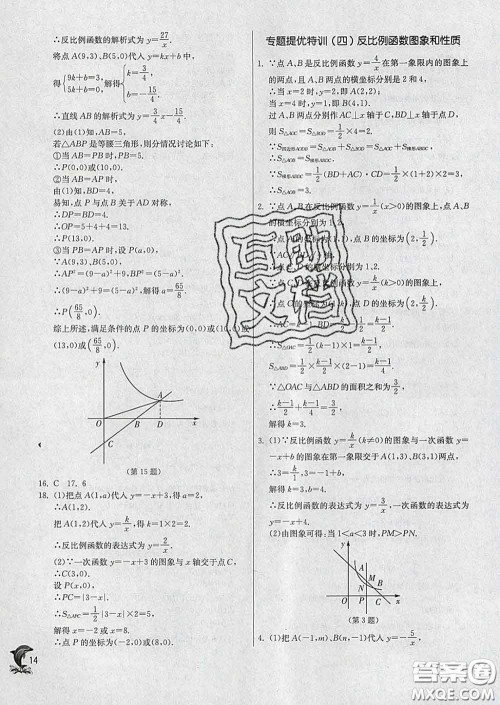 ∴反比例函数的解析式为 y=27/x.
将点 A(9,3)、B(5,0)代入 y=kx+b 中,
得{9k+b=3, 5k+b=0, 解得{k=3/4, b=-15/4.
∴直线 AB 的解析式为 y=3/4x-15/4.
(2)由(1)知,AB=5,
若△ABP 是等腰三角形,则分情况讨论如下:
①当 AB=PB 时,PB=5,
∴P(0,0)或(10,0).
②当 AB=AP 时,
由(1)知,BD=4,
易知,点 P 与点 B 关于 AD 对称,
∴DP=BD=4.
∴OP=5+4+4=13.
∴P(13,0).
③当 PB=AP 时,设 P(a,0),
∵A(9,3),B(5,0),
∴AP²=(9-a)²+9,BP²=(5-a)².
∴(9-a)²+9=(5-a)². ∴a=65/8.
∴P(65/8,0).
综上所述,满足条件的点 P 的坐标为(0,0)或(10,0)或
(13,0)或(65/8,0).
y
A
O B D x
C
(第 15 题)
16. C 17. 6
18. (1)把点 A(1,a)代入 y=-x+3,得 a=2.
∴A(1,2).
把 A(1,2)代入反比例函数 y=k/x,得 k=2.
∴反比例函数的表达式为 y=2/x.
(2)∵一次函数 y=-x+3 的图象与 x 轴交于点 C,
∴C(3,0).
设 P(x,0),
∴PC=|3-x|.
∴S△APC=1/2|3-x|×2=5.
解得 x=-2 或 x=8.
∴点 P 的坐标为(-2,0)或(8,0).
14
专题提优特训(四) 反比例函数图象和性质
1. ∵点 A、B 是反比例函数 y=4/x 在第一象限内的图象上
的两点,且 A、B 两点的横坐标分别是 2 和 4,
∴当 x=2 时,y=2,即 A(2,2).
当 x=4 时,y=1,即 B(4,1).
过 A、B 两点分别作 AC⊥x 轴于 C,BD⊥x 轴于点 D,
则 S△AOC=S△BOD=1/2×4=2.
∵S四边形AODB=S△AOB+S△BOD=S△AOC+S梯形ABDC,
∴S△AOB=S梯形ABDC.
∵S梯形ABDC=1/2(BD+AC)·CD=1/2×(1+2)×2=3,
∴S△AOB=3.
2. ∵点 A、B 在反比例函数 y=1/x(x>0)的图象上,点 A、B
的横坐标分别为 1、2,
(2,1/2).
1、2,
(2,k/2).
S△ABD=1/2
∵△OAC 与△ABD 的面积之和为3/2,
∴k-1/2+k-1/4=3/2.
解得 k=3.
3. (1)∵反比例函数 y=k/x(k≠0)的图象与一次函数 y=
-x+b 的图象在第一象限交于 A(1,3)、B(3,1)两点,
∴3=k/1,3=-1+b.
解得 k=3,b=4.
∴反比例函数和一次函数的表达式分别为 y=3/x,y=
-x+4.
(2)由图象可得:当 1<a<3 时,PM>PN.
y
A M
N B
O P x
(第 3 题)
4. (1)把 A(-1,m)、B(n,-1)代入 y=-5/x,
互助文档
答案圈
MXQE.COM